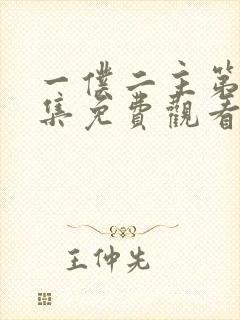 一僕二主第
集免費觀看
王仲先